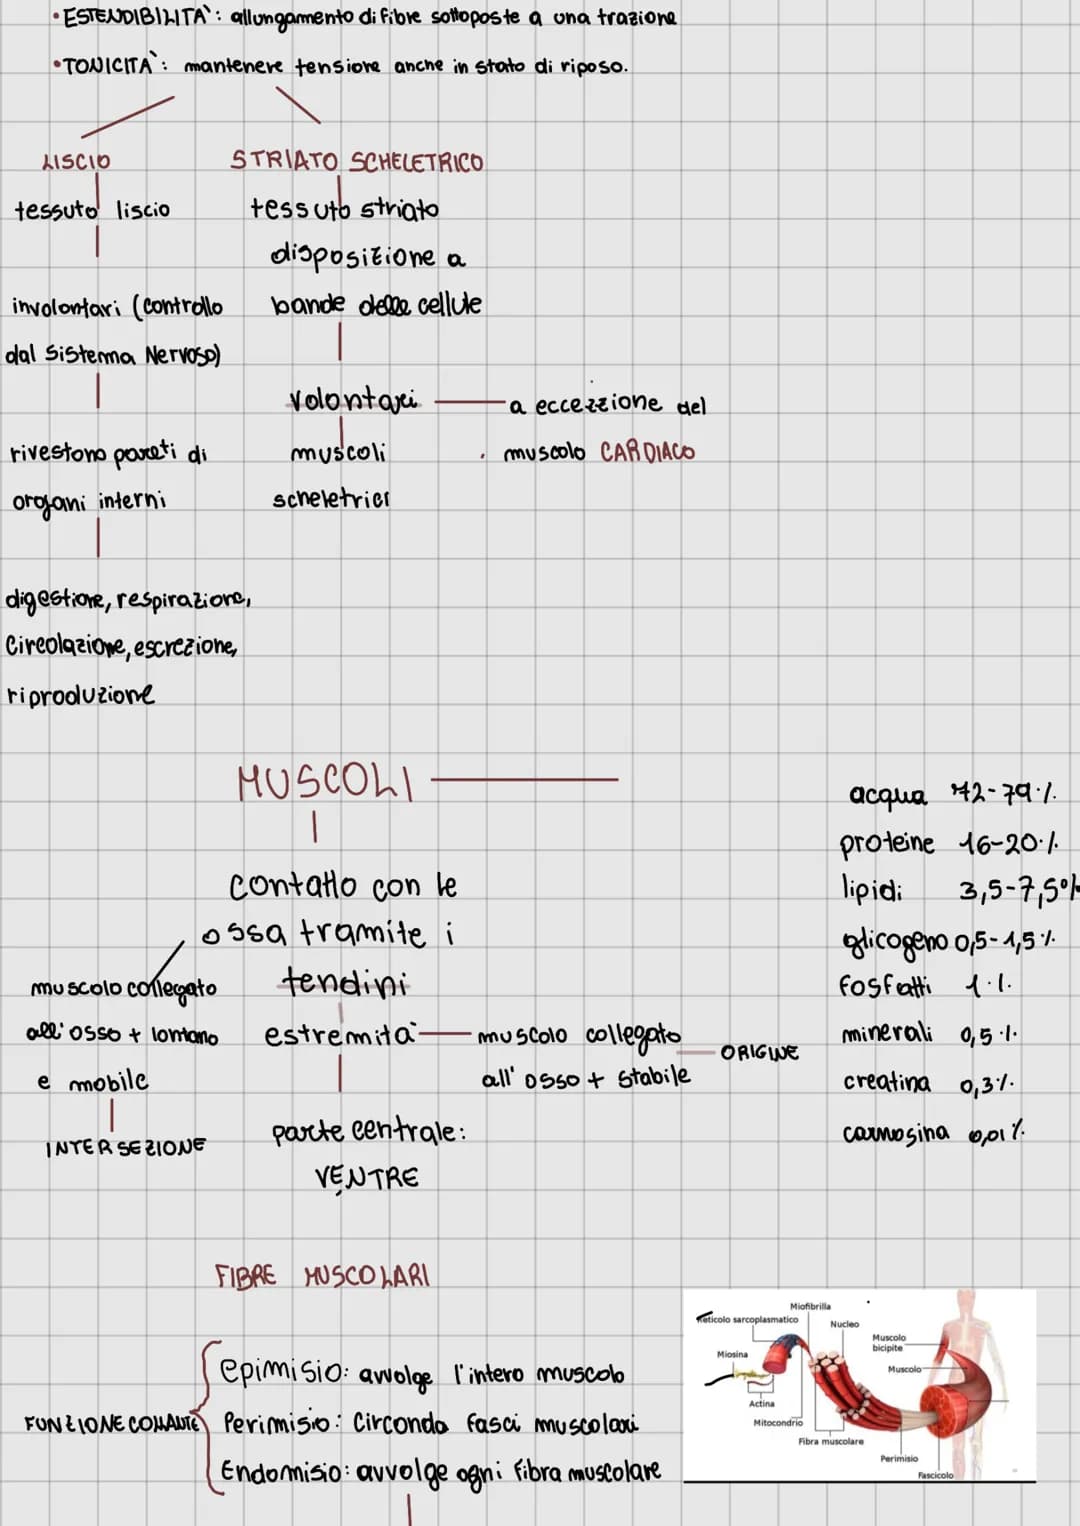 • ESTENDIBILITA': allungamento di fibre sottoposte a una trazione
• TONICITA': mantenere tensione anche in stato di riposo.
LISCIO
tessuto liscio
involontari (controllo
dal Sistema Nervoso)
rivestono pareti di
organi interni
digestione, respirazione,
Circolazione, escrezione,
riproduzione
STRIATO SCHELETRICO
tessuto striato
disposizione a
bande delle cellule
volontari
muscoli
scheletrici
a eccezzione del
muscolo CARDIACO
MUSCOLI
contatto con le
ossa tramite i
tendini
estremità
parte centrale:
VENTRE
muscolo collegato
all'osso + lontano
e mobile
INTERSEZIONE
muscolo collegato
all'osso + stabile
ORIGINE
acqua 72-79%
proteine 16-20%
lipidi 3,5-7,5%
glicogeno 0,5-1,5%
fosfatti 1%
minerali 0,5%
creatina 0,3%
carnosina 0,01%
FIBRE MUSCOLARI
FUNZIONE COMANTE
epimisio: avvolge l'intero muscolo
Perimisio: Circonda fasci muscolari
Endomisio: avvolge ogni fibra muscolare
Miofibrilla
Reticolo sarcoplasmatico
Nucleo
Muscolo
bicipite
Miosina
Muscolo
Actina
Mitocondrio
Fibra muscolare
Perimisio
Fascicolo